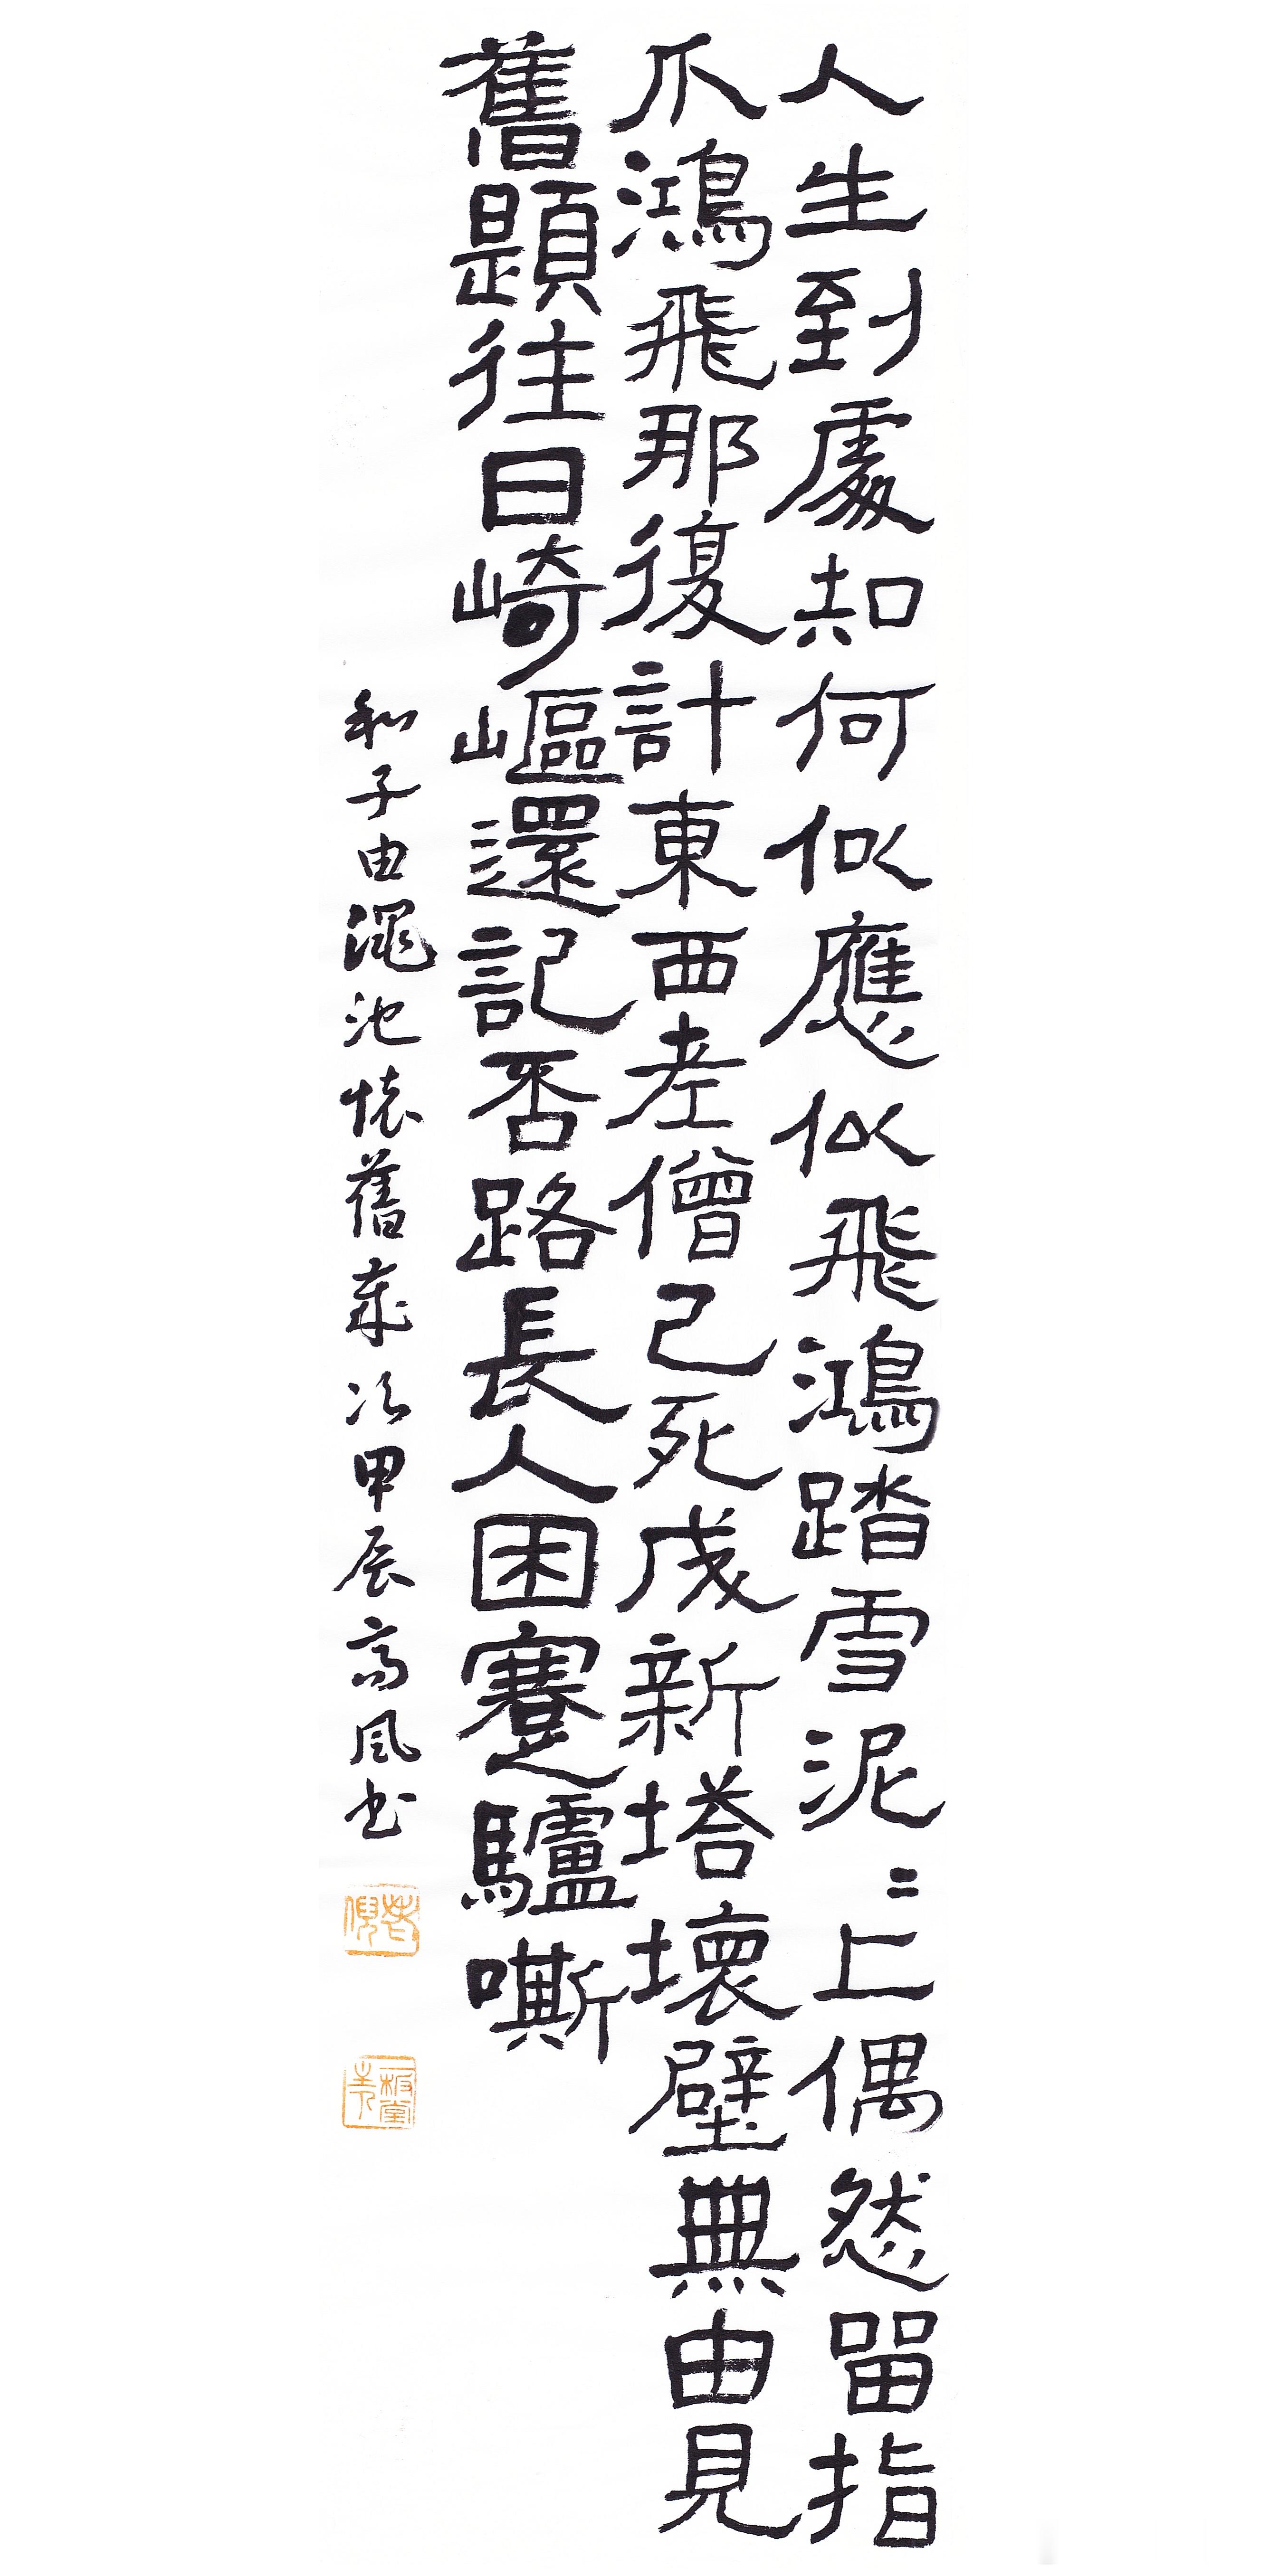 人生到處知何似應似飛鴻踏雪泥〻上偶然留指
爪鴻飛那復計東西老僧已死成新塔壞壁無由見
舊題往日崎嶇還記否路長人困蹇驢嘶
和子由澠池懷舊 歲次甲辰高風书